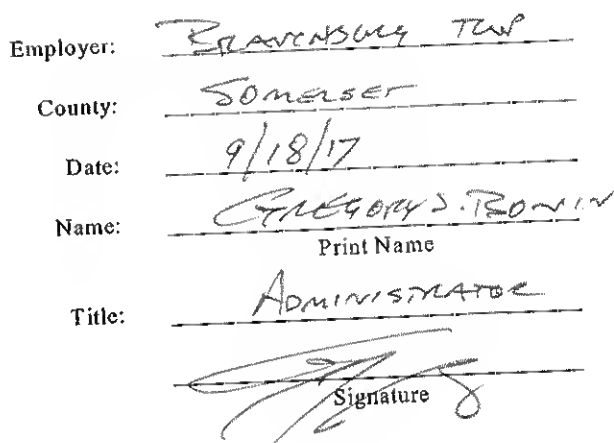 Employer: BRANCHBURG TWP
County: Somerset
Date: 9/18/17
Name: GREGORY J. BONIN
Print Name
Title: ADMINISTRATOR
Signature